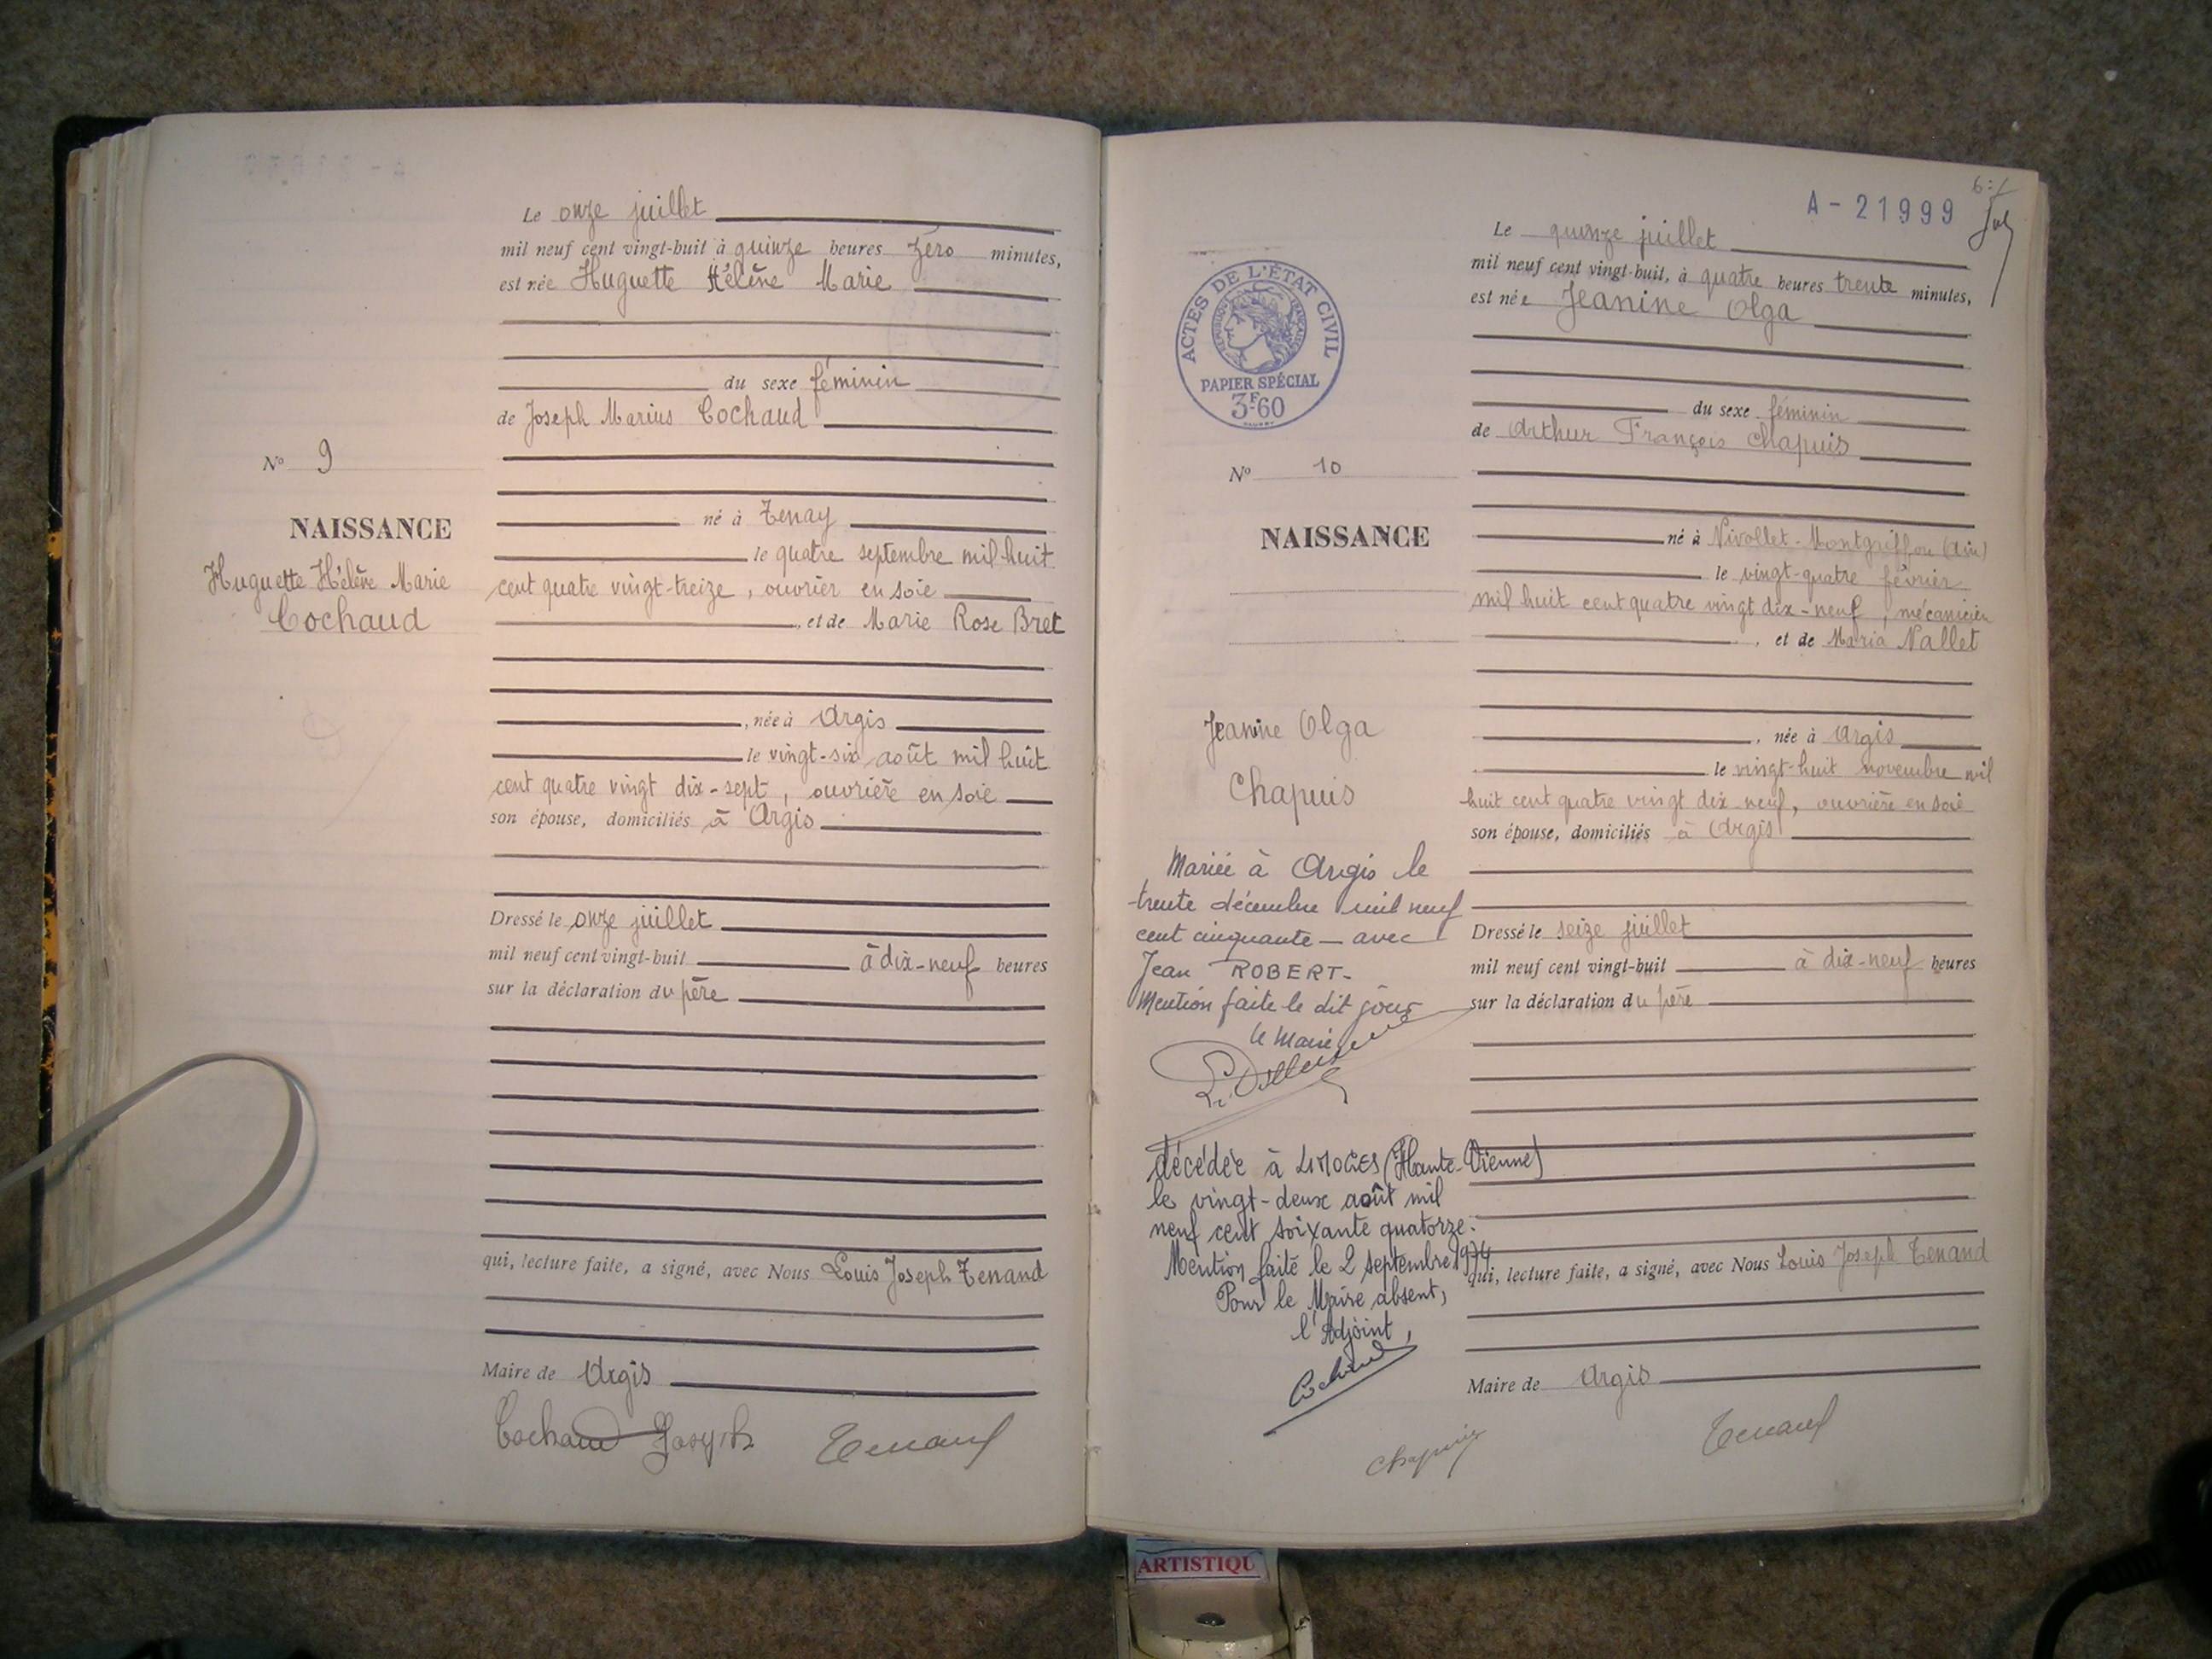 Le onze juillet
mil neuf cent vingt-huit à quinze heures zéro minutes,
est née Huguette Hélène Marie
du sexe féminin
de Joseph Marius Cochaud
N° 9
né à Tenay
NAISSANCE
le quatre septembre mil huit
Huguette Hélène Marie
cent quatre vingt-treize, ouvrier en soie
Cochaud
, et de Marie Rose Bret
, née à Argis
le vingt-six août mil huit
cent quatre vingt dix-sept, ouvrière en soie
son épouse, domiciliés à Argis
Dressé le onze juillet
mil neuf cent vingt-huit à dix-neuf heures
sur la déclaration du père
qui, lecture faite, a signé, avec Nous Louis Joseph Tenand
Maire de Argis
Cochaud Joseph Tenand
A-21999
Le quinze juillet
mil neuf cent vingt-huit, à quatre heures trente minutes,
est née Jeanine Olga
ACTES DE L'ÉTAT CIVIL
RÉPUBLIQUE FRANÇAISE
PAPIER SPÉCIAL
3F60
du sexe féminin
de Arthur François Chapuis
N° 10
NAISSANCE
né à Nivollet-Montgriffon (Ain)
le vingt-quatre février
mil huit cent quatre vingt dix-neuf, mécanicien
, et de Maria Nallet
Jeanine Olga
Chapuis
, née à Argis
le vingt-huit novembre mil
huit cent quatre vingt dix neuf, ouvrière en soie
son épouse, domiciliés à Argis
Dressé le seize juillet
mil neuf cent vingt-huit à dix-neuf heures
sur la déclaration du père
Mariée à Argis le
trente décembre mil neuf
cent cinquante — avec
Jean ROBERT-
Mention faite le dit jour
le Maire
décédée à LIMOGES (Haute-Vienne)
le vingt-deux août mil
neuf cent soixante quatorze.
Mention faite le 2 septembre 1974
Pour le Maire absent,
l'Adjoint,
qui, lecture faite, a signé, avec Nous Louis Joseph Tenand
Maire de Argis
Chapuis Tenand
ARTISTIQU